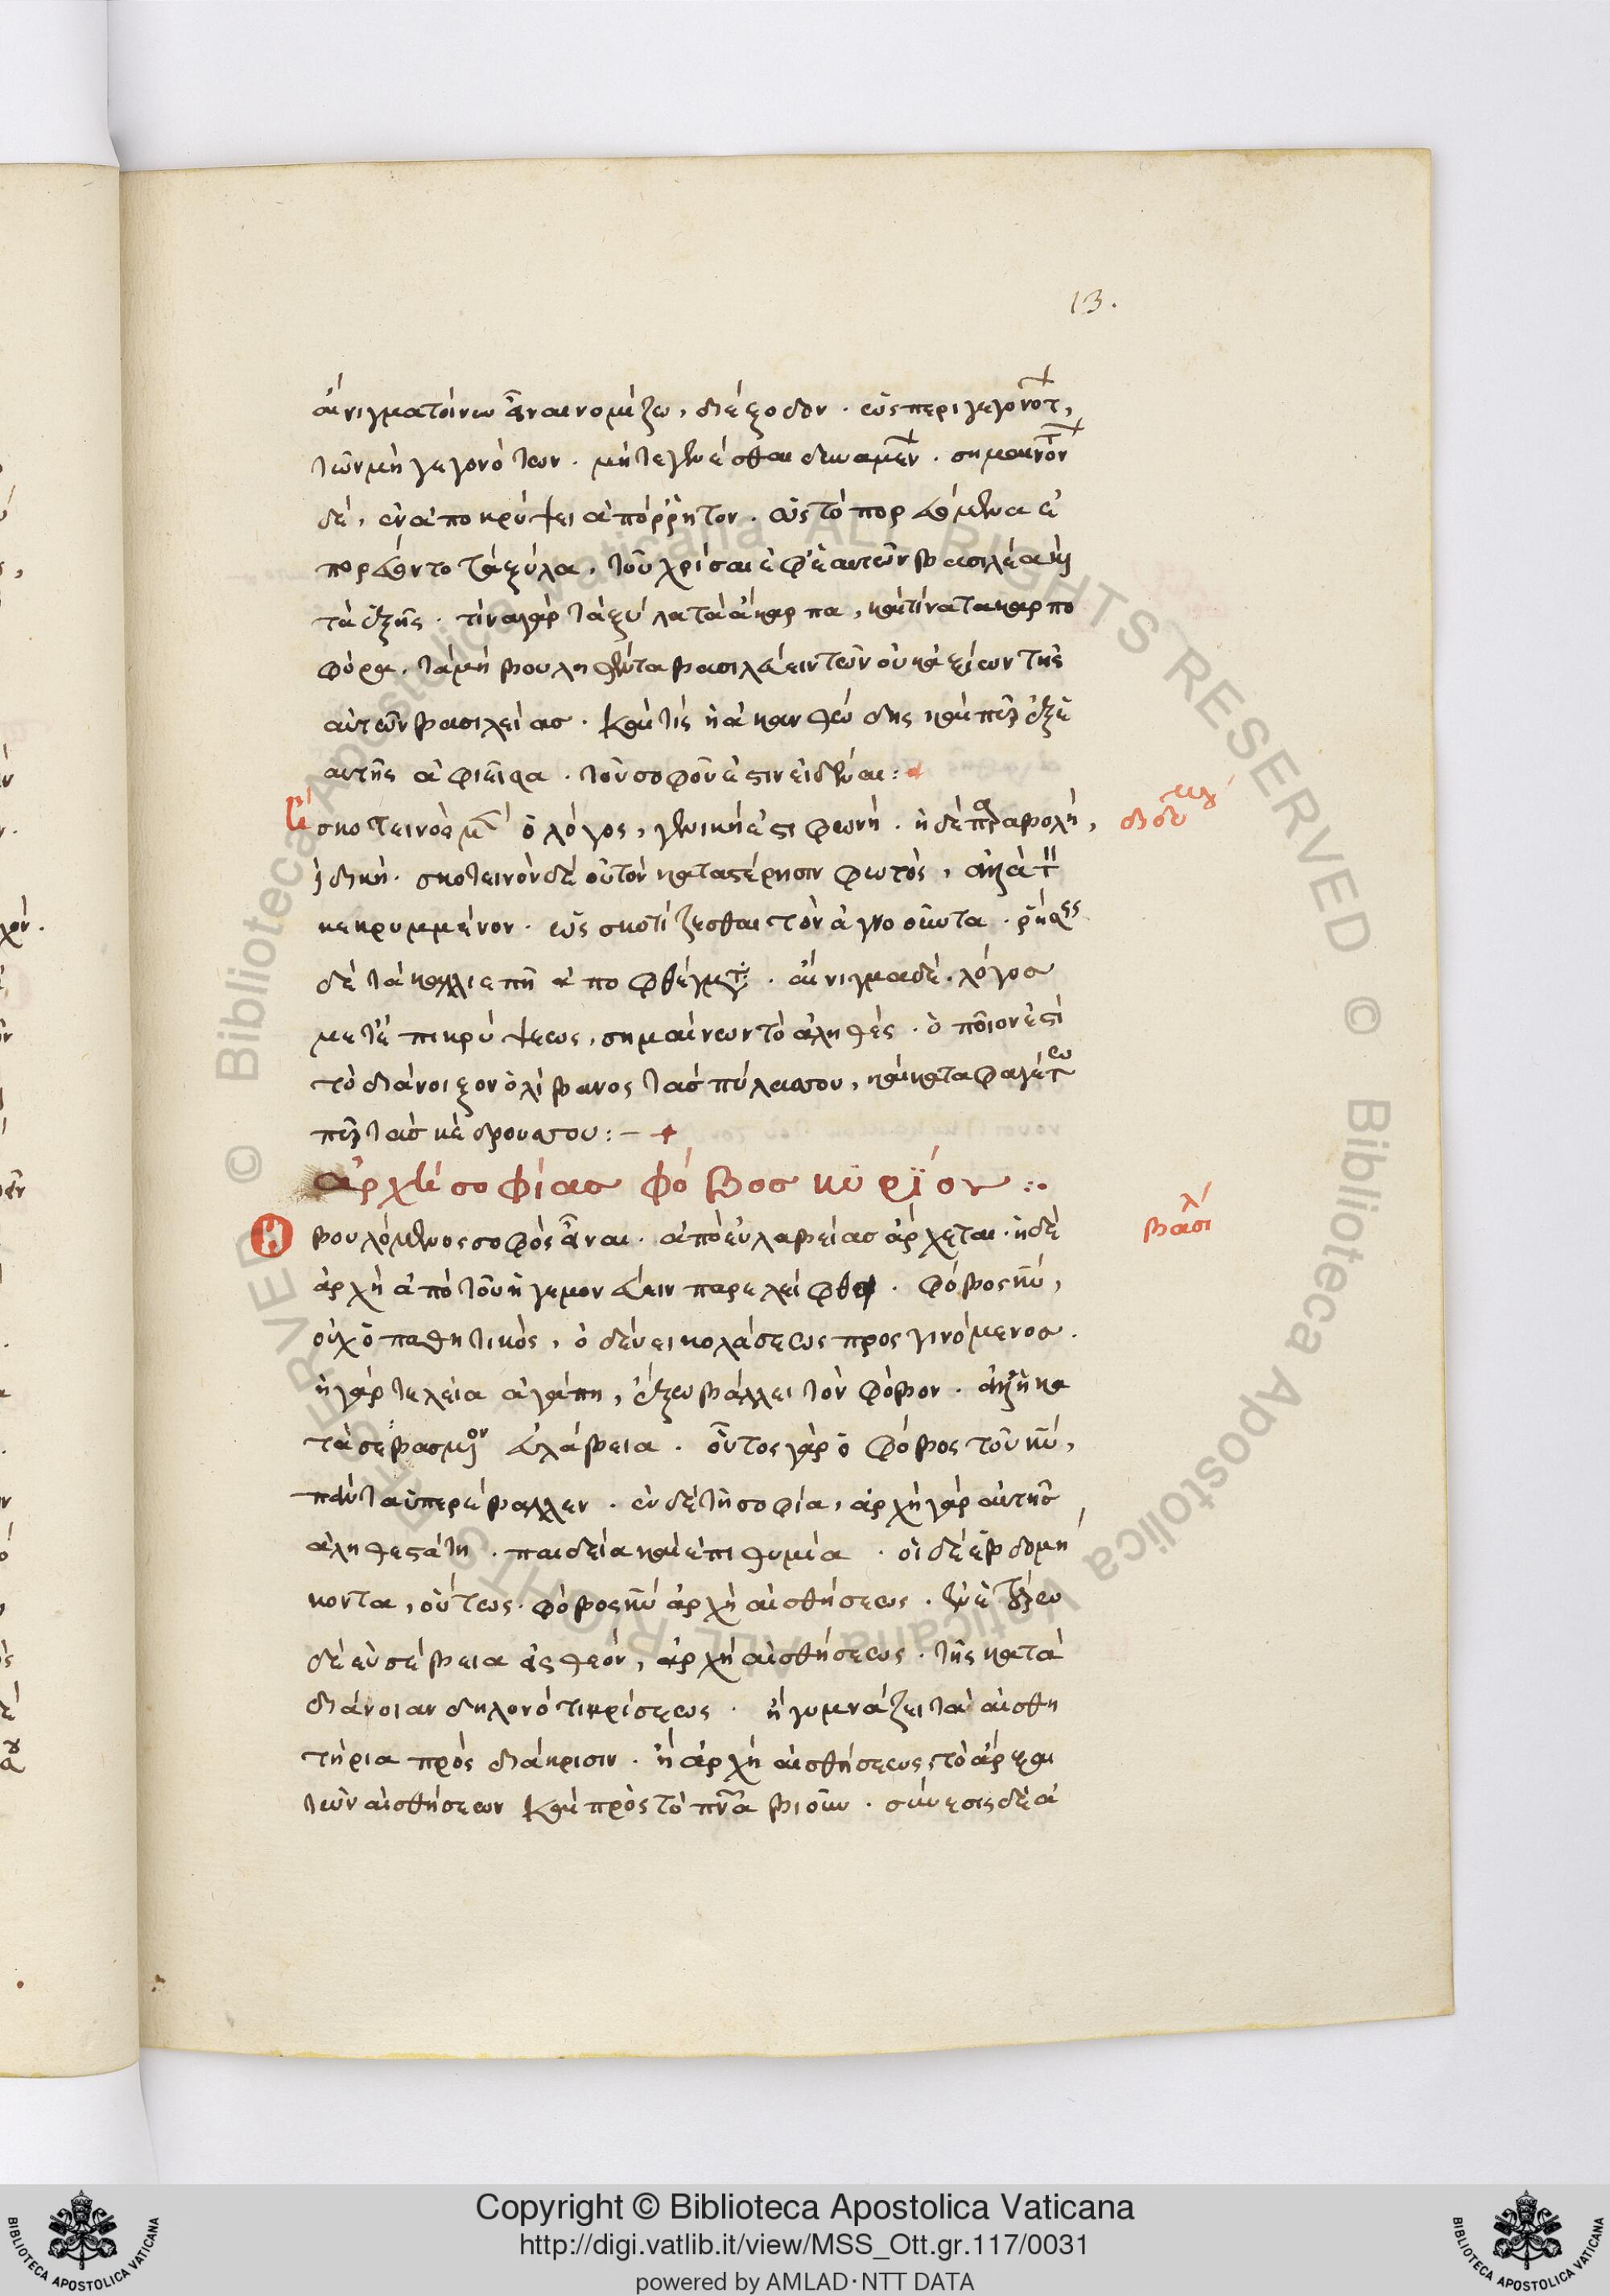 13.
αἰνιγματώδων εἶναι νομίζω, διέξοδον. ὡς περὶ γεγονότ,
τῶν μὴ γεγονότων. μήτε γενέσθαι δυναμέν. σημαινόντων
δέ, ἐν ἀποκρύψει ἀπόρρητον. ὡς τὸ πορευόμενα ἐ
πορεύοντο τὰ ξύλα, τοῦ χρίσαι ἐφ' ἑαυτῶν βασιλέα καὶ
τὰ ἑξῆς. τίνα γὰρ τὰ ξύλα τὰ ἄκαρπα, καὶ τίνα τα καρπο
φόρα. τὰ μὴ βουληθέντα βασιλεύειν τῶν οὐκ ἀξίων τῆς
αὐτῶν βασιλείας. καὶ τίς ἡ ἀκανθώδης καὶ πῦρ ἐξ ἑ
αυτῆς ἀφιεῖσα. τοῦ σοφοῦ ἐστιν εἰδέναι:
σκοτεινὸς μὲν ὁ λόγος, γενική ἐστι φωνή. ἡ δὲ παραβολή,
διδύ
ἰδική. σκοτεινὸν δὲ οὐ τὸν κατὰ στέρησιν φωτός, ἀλλὰ τὸ
κεκρυμμένον. ὡς σκοτίζεσθαι τὸν ἀγνοοῦντα. ῥήσεις
δὲ τὰ καλλιεπῆ ἀποφθέγματα. αἴνιγμα δὲ. λόγος
μετ' ἐπικρύψεως, σημαίνων τὸ ἀληθές. ὁποῖον ἐστί
τὸ διάνοιξον ὁ λίβανος τὰς πύλας σου, καὶ καταφαγέτω
πῦρ τὰς κέδρους σου:
ἀρχὴ σοφίας φόβος κυρίου:
Ὁ βουλόμενος σοφὸς εἶναι. ἀπὸ εὐλαβείας ἄρχεται. ἡ δὲ
βασι
ἀρχὴ ἀπὸ τοῦ ἡγεμονεύειν παρελείφθη. φόβος κυ,
οὐχ ὁ παθητικός, ὁ δέει κολάσεως προσγινόμενος.
ἡ γὰρ τελεία ἀγάπη, ἔξω βάλλει τὸν φόβον. ἀλλ' ἡ κα
τὰ σεβασμὸν εὐλάβεια. οὗτος γὰρ ὁ φόβος τοῦ κυ,
πάντα ὑπερέβαλλεν. ἐν δὲ τῇ σοφία, ἀρχὴ γὰρ αὐτῆς
ἀληθεστάτη. παιδεία καὶ ἐπιθυμία. οἱ δὲ ἑβδομή
κοντα, οὕτως. φόβος κυ ἀρχὴ αἰσθήσεως.
δὲ εὐσέβεια εἰς θεόν, ἀρχὴ αἰσθήσεως. τῆς κατὰ
διάνοιαν δηλονότι κρίσεως. ἡ γυμνάζει τὰ αἰσθη
τήρια πρὸς διάκρισιν. ἡ ἀρχὴ αἰσθήσεως, τὸ ἄρξαι
τῶν αἰσθήσεων καὶ πρὸς τὸ πνα βιοῦν. σύνεσις δὲ ἀ
Copyright © Biblioteca Apostolica Vaticana
http://digi.vatlib.it/view/MSS_Ott.gr.117/0031
powered by AMLAD·NTT DATA